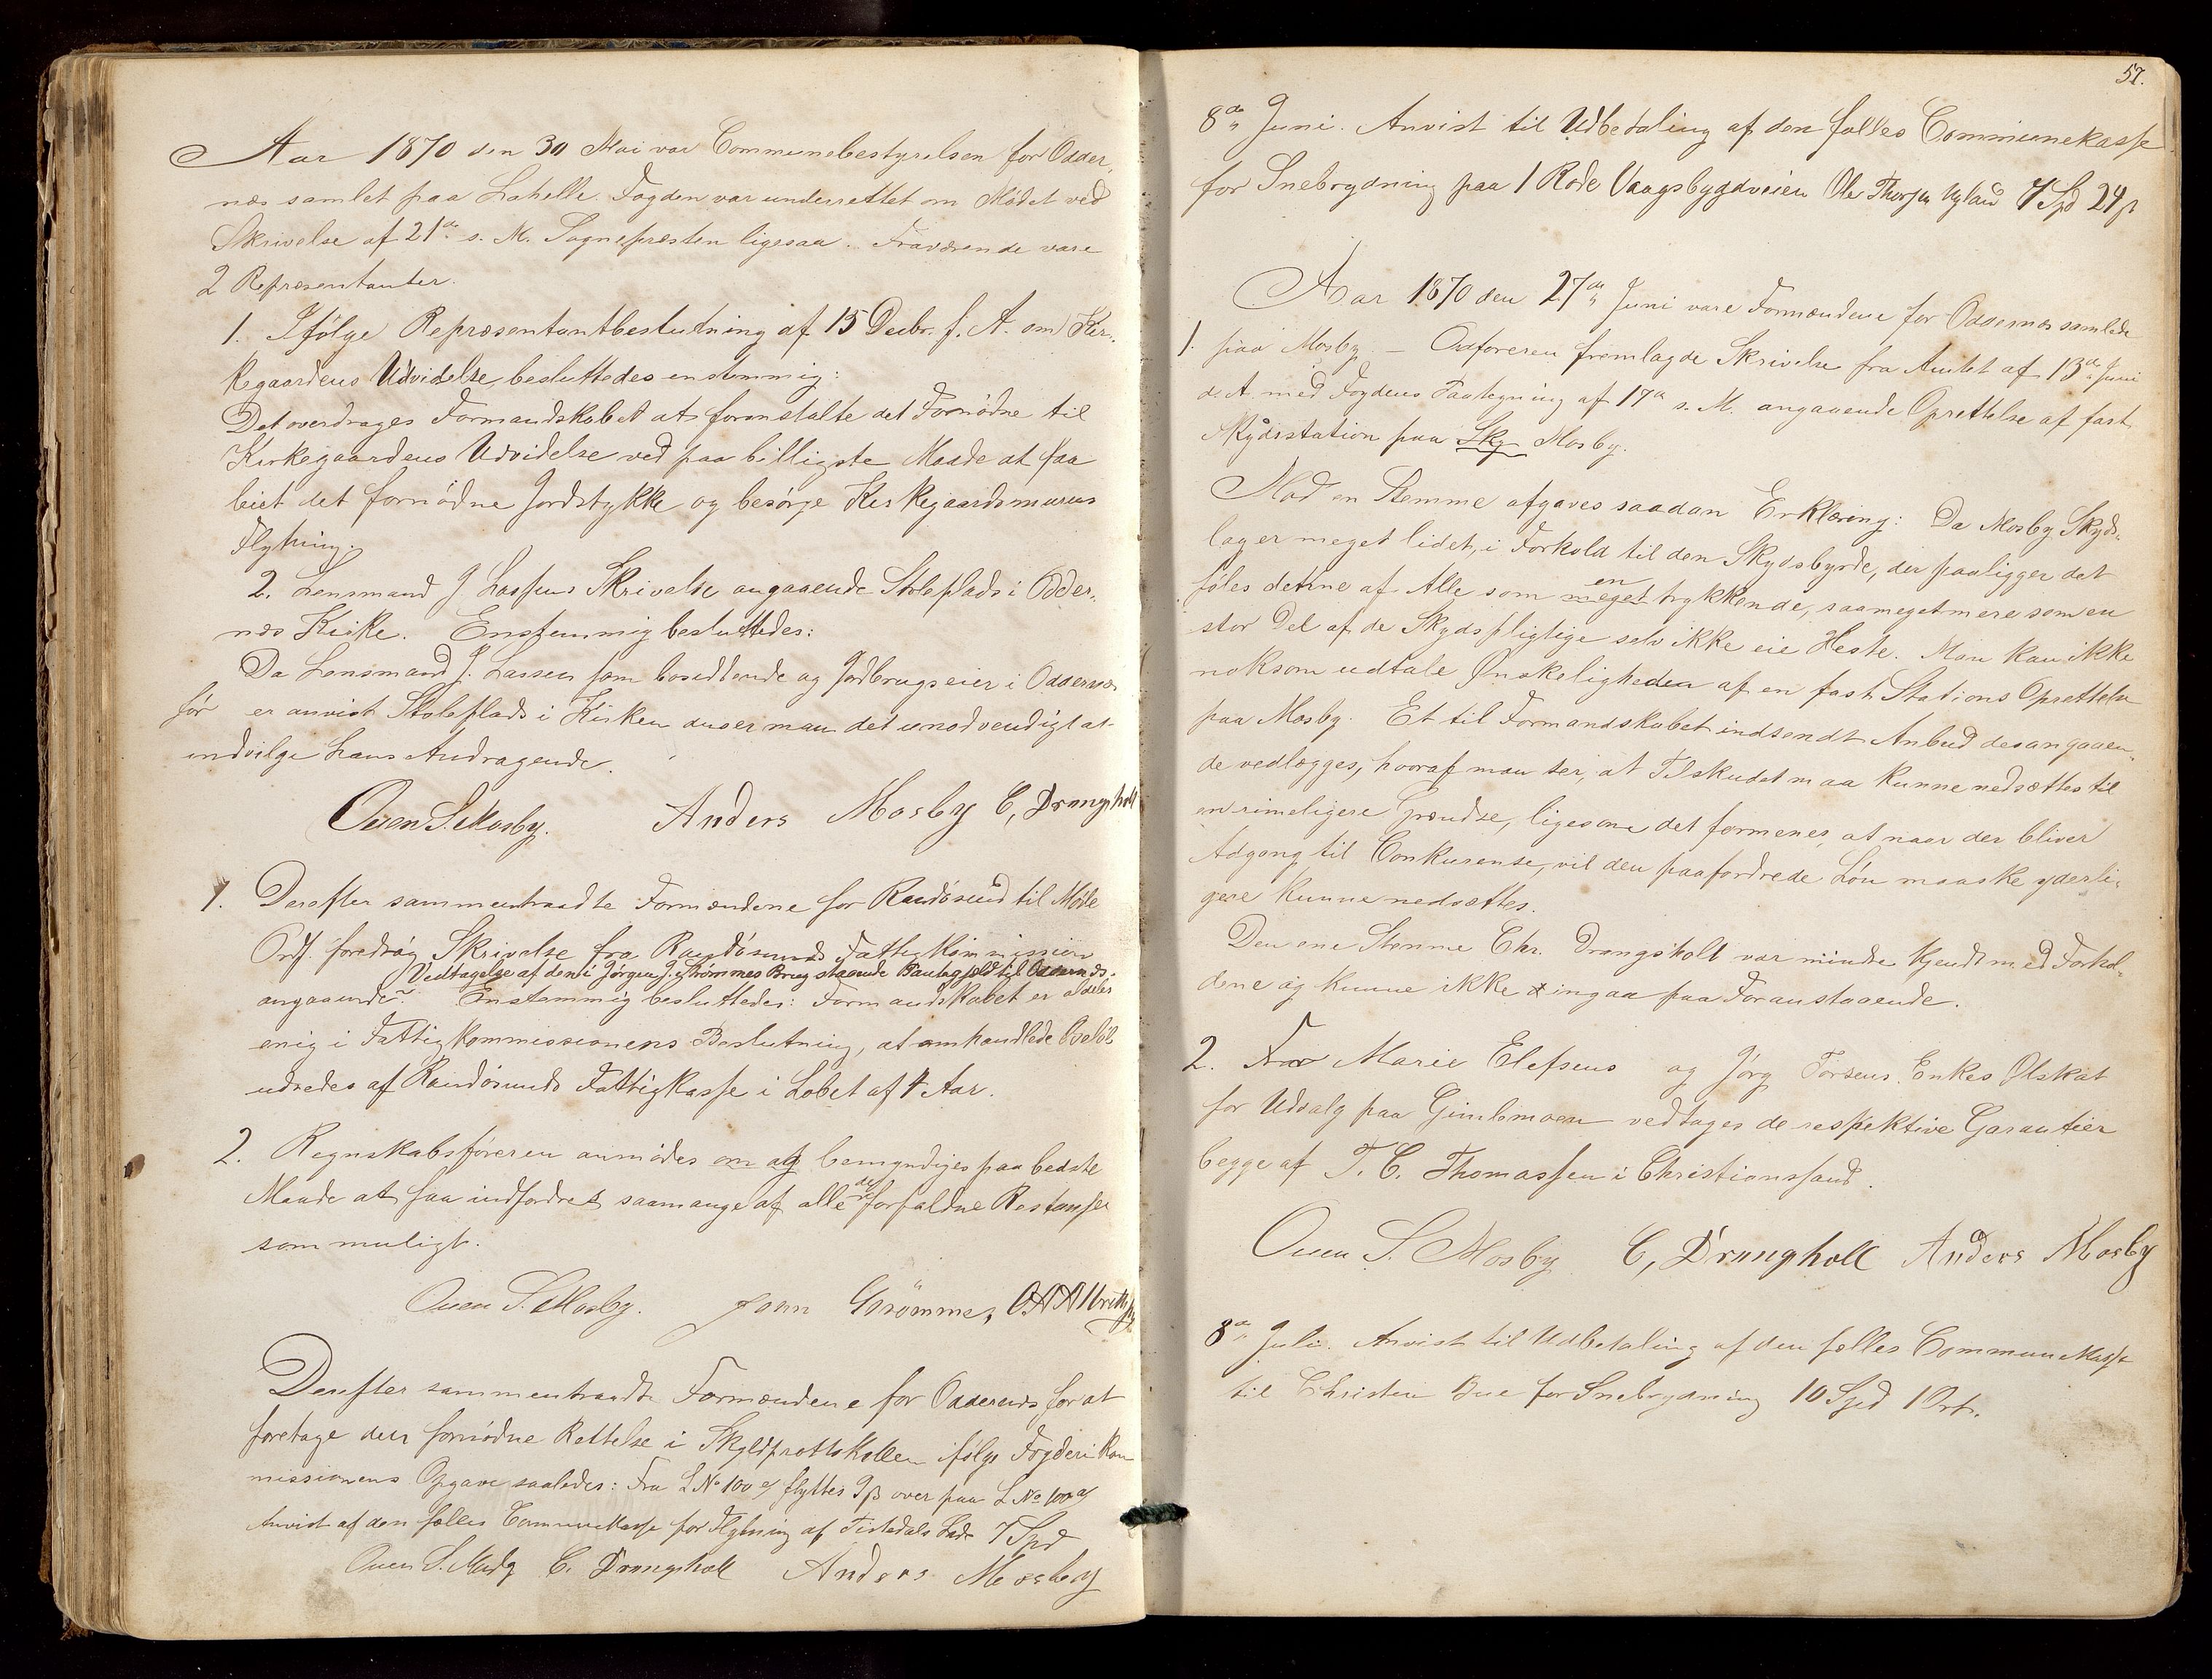 Aar 1870 den 30 Mai var Communebestyrelsen for Odder,
næs samlet paa Lahelle. Fogden var underrettet om Mødet ved
Skrivelse af 21de s. M. Sognepræsten ligesaa. Fraværende vare
2 Repræsentanter.
1. Ifølge Repræsentantbeslutning af 15 Decbr. f. A. om Kir-
kegaardens Udvidelse besluttedes enstemmig:
Det overdrages Formandskabet at foranstalte det Fornødne til
Kirkegaardens Udvidelse ved paa billigste Maade at faa
leiet det fornødne Jordstykke og besørge Kirkegaardsmurens
Flytning.
2. Lensmand J. Lassens Skrivelse angaaende Stoleplads i Odder,
næs Kirke. Enstemmig besluttedes:
Da Lensmand J. Lassen som bosiddende og Jordbrugseier i Oddernæs
før er anvist Stoleplads i Kirken anser man det unødvendigt at
indvilge hans Andragende.
Ouen S. Mosby. Anders Mosby C, Drangsholt
1. Derefter sammentraadte Formændene for Randøsund til Møde
Ordf. foredrog Skrivelse fra Randøsunds Fattigkommission
Vedtagelse af den i Jørgen J. Strømmes Brug staaende Pantegjeld til Oddernæs.
angaaende Enstemmig besluttedes: Formandskabet er aldeles
enig i Fattigkommissionens Beslutning, at omhandlede Beløb
udredes af Randøsunds Fattigkasse i Løbet af 4 Aar.
2. Regnskabsføreren anmodes om og bemyndiges paa bedste
Maade at faa indfordret saamange af alle de forfaldne Restanser
som muligt.
Ouen S. Mosby. Strømme,
Derefter sammentraadte Formændene for Oddernæs for at
foretage den fornødne Rettelse i Skyldprottokollen ifølge Fogderikom
missionens Opgave saaledes: Fra L No 100 flyttes 9 ß over paa L No 100
Anvist af den fælles Communekasse for Flytning af Tistedals Lade 7 Spd
Ouen S. Mosby C. Drangsholt Anders Mosby
57.
8de Juni. Anvist til Udbetaling af den fælles Communekasse
for Snebrydning paa 1 Rode Vaagsbygdveien Ole Thorsen Ugland 7 Spd 24 ß
Aar 1870 den 27de Juni vare Formændene for Oddernæs samlede
1. paa Mosby. – Ordføreren fremlagde Skrivelse fra Amtet af 13de Juni
d. A. med Fogdens Paategning af 17de s. M. angaaende Oprettelse af fast
Skydsstation paa Sky Mosby.
Mod en Stemme afgaves saadan Erklæring: Da Mosby Skyds-
lag er meget lidet, i Forhold til den Skydsbyrde, der paaligger det
en
føles denne af Alle som meget trykkende, saameget mere som en
stor Del af de Skydspligtige selv ikke eie Heste. Man kan ikke
noksom udtale Ønskeligheden af en fast Stations Oprettelse
paa Mosby. Et til Formandskabet indsendt Anbud desangaaen-
de vedlægges, hvoraf man ser, at Tilskudet maa kunne nedsættes til
en rimeligere Grændse, ligesom det formenes, at naar der bliver
Adgang til Conkurense, vil den paafordrede Løn maaske yderli-
gere kunne nedsættes.
Den ene Stemme Chr. Drangsholt var mindre kjendt med Forhol-
dene og kunne ikke ingaa paa Foranstaaende.
2. For Marie Elefsens og Jørg Torsens Enkes Ølskat
for Udsalg paa Gimlemoen vedtages de respektive Garantier
begge af T. C. Thomassen i Christianssand.
Ouen S. Mosby C, Drangsholt Anders Mosby
8de Juli. Anvist til Udbetaling af den fælles Communekasse
til Christen Bue for Snebrydning 10 Spd 1 Ort.